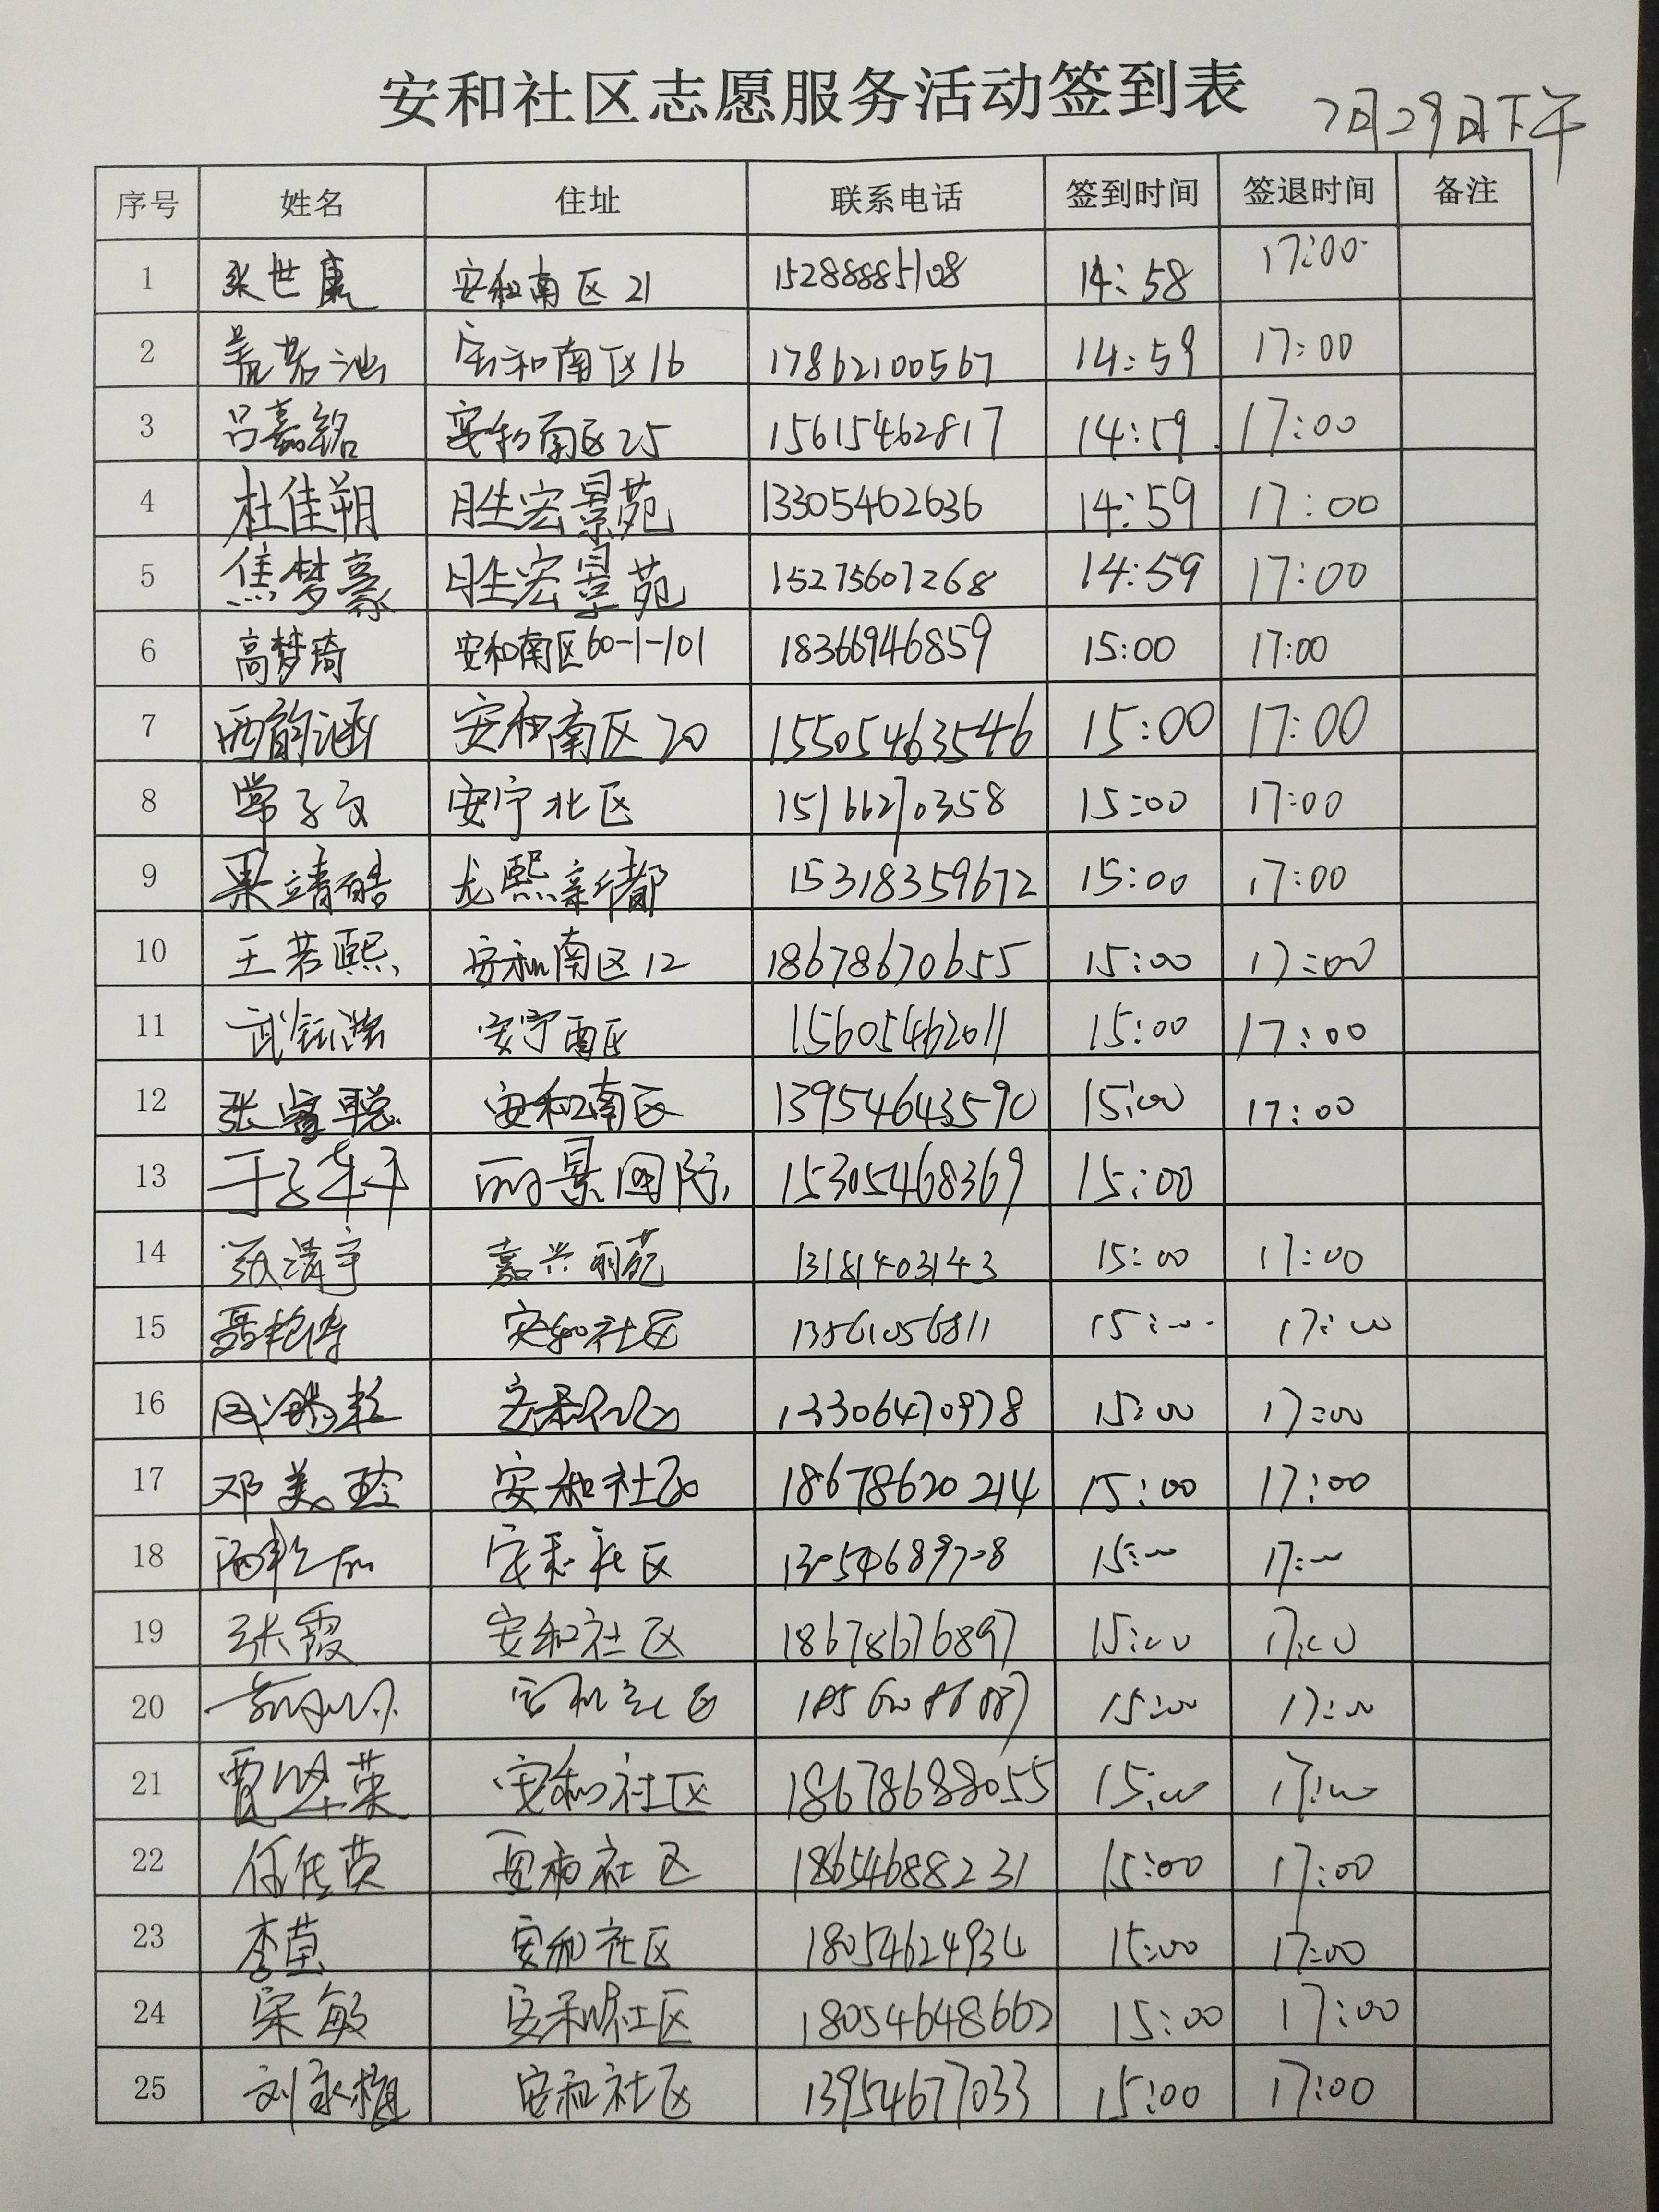 安和社区志愿服务活动签到表
7月29日下午
序号 姓名 住址 联系电话 签到时间 签退时间 备注
1 张世康 安和南区21 15288885108 14:58 17:00
2 安和南区16 17862100567 14:59 17:00
3 吕嘉铭 安和南区25 15615462817 14:59 17:00
4 杜佳朔 胜宏景苑 13305462636 14:59 17:00
5 焦梦豪 胜宏景苑 15275607268 14:59 17:00
6 高梦琦 安和南区60-1-101 18366946859 15:00 17:00
7 西韵涵 安和南区20 15505463546 15:00 17:00
8 常子文 安宁北区 15166270358 15:00 17:00
9 果靖皓 龙熙新都 15318359672 15:00 17:00
10 王若熙 安和南区12 18678670655 15:00 17:00
11 武钰浩 安宁西区 15605462011 15:00 17:00
12 张睿聪 安和南区 13954643590 15:00 17:00
13 于子 丽景国际 15305468369 15:00
14 张清宇 嘉兴丽苑 13181403143 15:00 17:00
15 安和社区 13561056811 15:00 17:00
16 安和社区 13306470978 15:00 17:00
17 邓美玲 安和社区 18678620214 15:00 17:00
18 安和社区 13054689708 15:00 17:00
19 张霞 安和社区 18678676897 15:00 17:00
20 安和社区 15:00 17:00
21 贾坚英 安和社区 18678688055 15:00 17:00
22 任佳英 安和社区 18654688231 15:00 17:00
23 李莹 安和社区 18054624934 15:00 17:00
24 宋敏 安和社区 18054648662 15:00 17:00
25 刘永梅 安和社区 13954677033 15:00 17:00